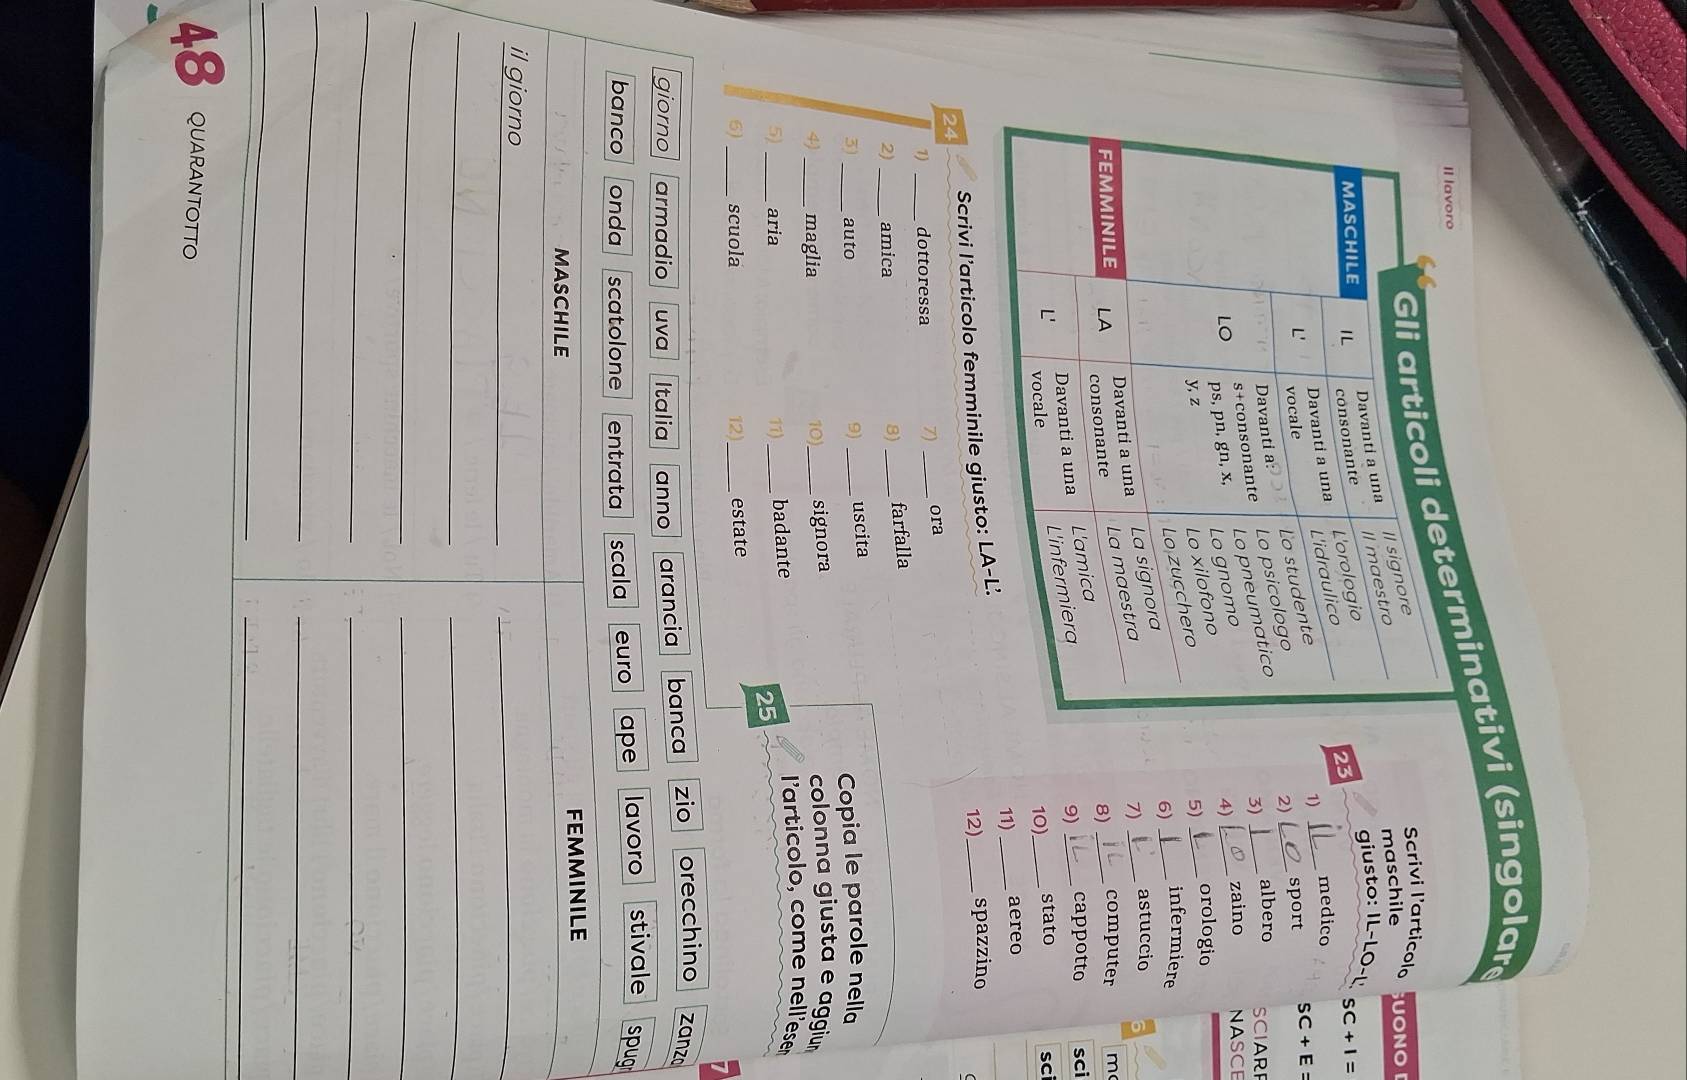 Il lavoro
Gli articoli determinativi (singolare
MASCHILE
IL
Davanti a una
consonante
Il signore
Il maestro
L'
Davanti a una
vocale
L'orologio
L'idraulico
LO
Davanti a:
s+consonante
ps, pn, gn, x,
y, z
Lo studente
Lo psicologo
Lo pneumatico
Lo gnomo
Lo xilofono
Lo zucchero
FEMMINILE
LA
Davanti a una
consonante
La signora
La maestra
L'
Davanti a una
vocale
L'amica
L'infermiera
23 Scrivi l'articolo
maschile
giusto: IL-LO-L'.
1) il medico
2) LO sport
3) l albero
4) LO zaino
5) L' orologio
6) L infermiere
7) L' astuccio
8) IL computer
9) IL cappotto
10) ____ stato
11) ____ aereo
12) ____ spazzino
24 Scrivi l'articolo femminile giusto: LA-L'.
1) ____ dottoressa
2) ____ amica
3) ____ auto
4) ____ maglia
5) ____ aria
6) ____ scuola
7) ____ ora
8) ____ farfalla
9) ____ uscita
10) ____ signora
11) ____ badante
12) ____ estate
25 Copia le parole nella
colonna giusta e aggiun
l'articolo, come nell'esem
giorno armadio uva Italia anno arancia banca zio orecchino zanza
banco onda scatolone entrata scala euro ape lavoro stivale spugn
MASCHILE FEMMINILE
il giorno
48 QUARANTOTTO
SUONO
SC + I =
SC + E =
SCIARP
NASCE
6
mo
sci
sci
7